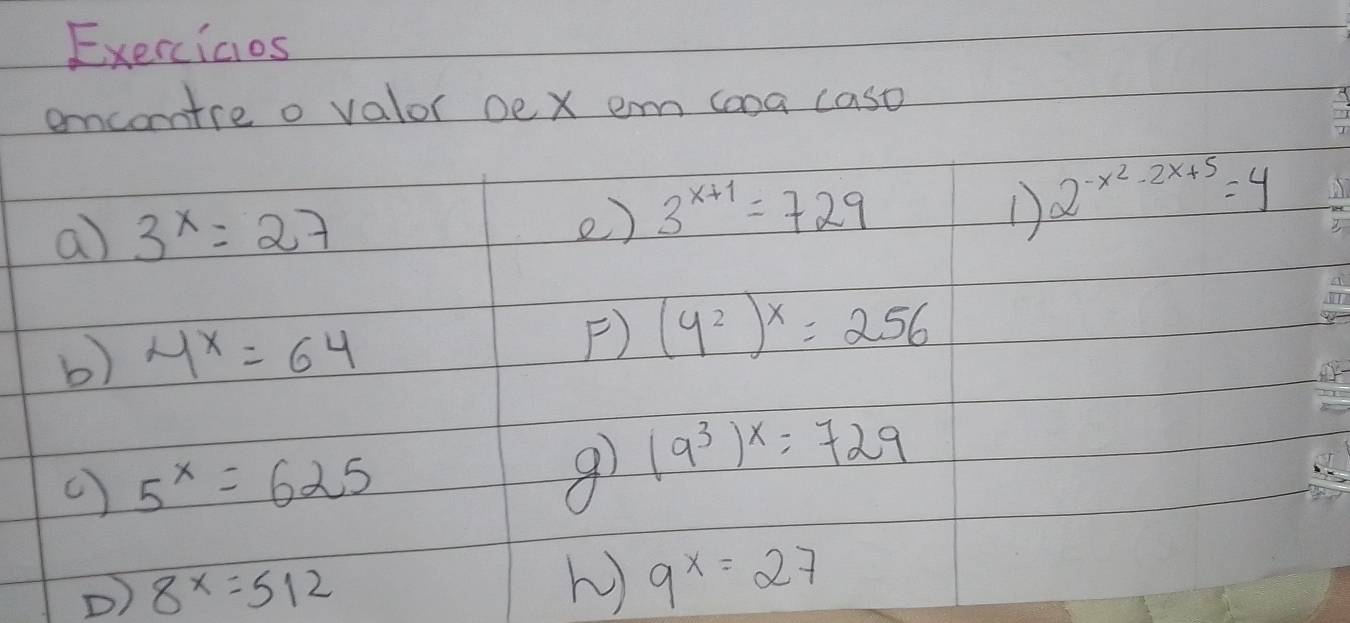 Exercícios
encontre o valor De x em caDa caso
a) 3^x = 27
b) 4^x = 64
c) 5^x = 625
D) 8^x = 512
e) 3^{x+1} = 729
F) (4^2)^x = 256
g) (9^3)^x = 729
h) 9^x = 27
i) 2^{-x^2-2x+5} = 4